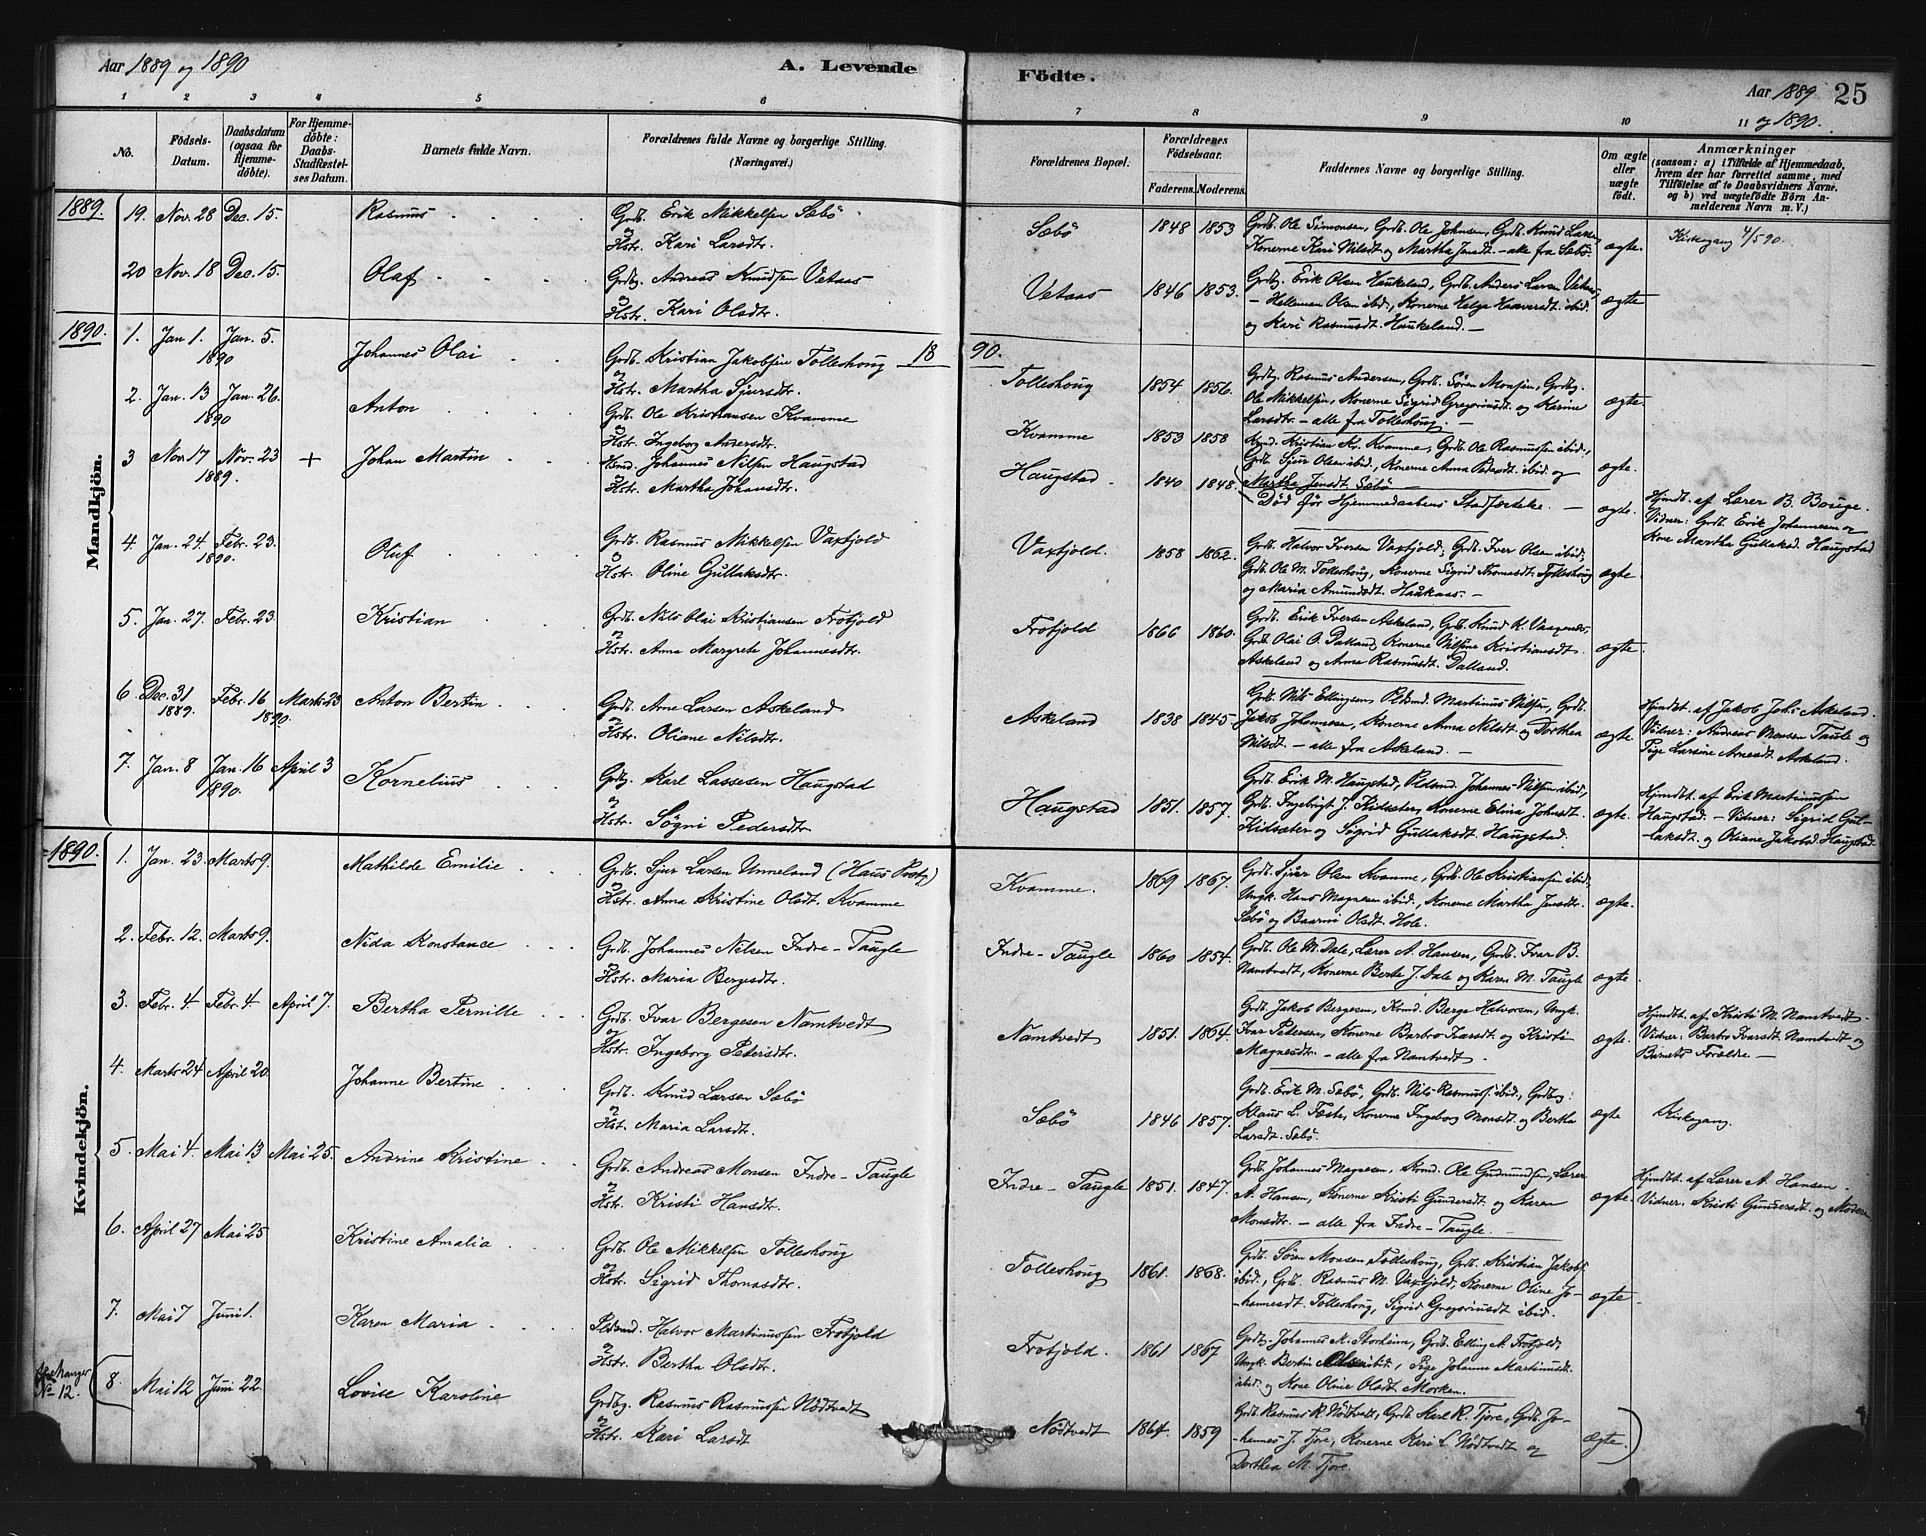 Aar 1889 og 1890
A. Levende
Födte.
Aar 1889 og 1890.
25
1 2 3 4 5 6 7 8 9 10 11
No.
Födsels-Datum.
Daabsdatum (ogsaa for Hjemme-döbte).
For Hjemme-döbte: Daabs-Stadfæstel-ses Datum.
Barnets fulde Navn.
Forældrenes fulde Navne og borgerlige Stilling. (Næringsvei.)
Forældrenes Bopæl.
Forældrenes Födselsaar.
Faderens. Moderens.
Faddernes Navne og borgerlige Stilling.
Om ægte eller uægte födt.
Anmærkninger
(saasom: a) i Tilfælde af Hjemmedaab, hvem der har forrettet samme, med Tilföielse af to Daabsvidners Navne, og b) ved uægtefödte Börn Anmelderens Navn m. V.)
Mandkjön.
1889.
19. Nov. 28 Dec. 15. Rasmus
Grdb. Erik Mikkelsen Sæbö
og Hstr. Kari Larsdtr.
Sæbö 1848 1853
Grdb. Ole Simonsen, Grdb. Ole Johnsen, Grdb. Knud Larsen
Konerne Kari Nilsdt og Martha Jensdt. - alle fra Sæbö.
ægte.
Kirkegang 4/5 90.
20 Nov. 18 Dec. 15. Olaf
Grdbg. Andreas Knudsen Vetaas
og Hstr. Kari Olsdtr.
Vetaas 1846 1853.
Grdbg. Erik Olsen Haukeland, Grdb. Anders Larsen Vetaas,
- Helleman Olsen ibid., Konerne Helga Haaversdt. ibid.
og Kari Rasmusdt. Haukeland. -
ægte
1890.
1. Jan 1. Jan. 5. 1890 Johannes Olai
Grdb. Kristian Jakobsen Tolleshoug
18 90.
og Hstr. Martha Sjursdtr.
Tolleshoug 1854 1856.
Grdbg. Rasmus Andersen, Grdb. Sören Monsen, Grdbg.
Ole Mikkelsen, Konerne Sigrid Gregoriusdt. og Karine
Larsdtr. - alle fra Tolleshoug. -
ægte.
2. Jan. 13 Jan. 26. 1890 Anton
Grdb. Ole Kristiansen Kvamme
og Hstr. Ingeborg Andersdtr.
Kvamme 1853 1858
Kmd. Kristian Kr. Kvamme, Grdb. Ole Rasmussen ibid.,
Grdb. Sjur Olsen ibid., Konerne Anna Pedersdt. ibid. og
Martha Jensdt. Sæbö -
ægte.
3 Nov. 17 Nov. 23 1889. + Johan Martin
Hsmd. Johannes Nilsen Haugstad
og Hstr. Martha Johansdtr.
Haugstad 1840 1848.
Död för Hjemmedaabens Stadfæstelse. -
ægte.
Hjmdt. af Lærer B. Bauge.
Vidner: Grdb. Erik Johannesen og
Kone Martha Gullaksd. Haugstad
4. Jan. 24. Febr. 23. 1890. Oluf
Grdb. Rasmus Mikkelsen Vaxfjold
og Hstr. Oline Gullaksdtr.
Vaxfjold. 1858 1862.
Grdb. Halvor Iversen Vaxfjold, Grdb. Iver Olsen ibid.,
Grdb. Ole M. Tolleshoug, Konerne Sigrid Thomasdt. Tolleshoug
og Maria Amundsdt. Haukaas. -
ægte
5. Jan. 27. Febr. 23. Kristian
Grdb. Nils Olai Kristiansen Frotjold
og Hstr. Anna Margrete Johannesdtr.
Frotjold 1866 1860.
Grdb. Erik Iversen Askeland, Grdb. Knud K. Vaagenes,
Grdb. Olai O. Dalland, Konerne Nilsine Kristiansdt.
Askeland og Anna Rasmusdt. Dalland.
ægte
6 Dec. 31 1889. Febr. 16 1890. Marts 23 Anton Bertin
Grdb. Arne Larsen Askeland
og Hstr. Oliane Nilsdtr.
Askeland 1838 1845.
Grdb. Nils Ellingsen, Pldsmd. Martinus Nilsen, Grdb.
Jakob Johannesen, Konerne Anna Nilsdt. og Dorthea
Nilsdt. - alle fra Askeland. -
ægte.
Hjmdbt. af Jakob Johs. Askeland.
Vidner: Andreas Monsen Taule og
Pige Larsine Arnesdt. Askeland.
7. Jan. 8 Jan. 16 1890. April 3 Kornelius
Grdbg. Karl Lassesen Haugstad
og Hstr. Sögni Pedersdtr.
Haugstad 1851. 1857.
Grdb. Erik M. Haugstad, Pldsmd. Johannes Nilsen ibid.,
Grdb. Ingebrigt J. Kidsæter, Konerne Elina Johnsdt.
Kidsæter og Sigrid Gullaksdt. Haugstad.
ægte.
Hjmdbt. af Erik Martinussen
Haugstad. - Vidner: Sigrid Gul-
laksdt. og Oliane Jakobsd. Haugstad.
Kvindekjön.
1890.
1. Jan. 23. Marts 9. Mathilde Emilie
Grdb. Sjur Larsen Unneland (Haus Prstg.)
og Hstr. Anna Kristine Olsdt. Kvamme
Kvamme. 1869 1867.
Grdb. Sjur Olsen Kvamme, Grdb. Ole Kristiansen ibid.
Ungk. Hans Magnesen ibid., Konerne Martha Jensdtr.
Sæbö og Baarni Olsdt. Hole.
ægte.
2. Febr. 12. Marts 9. Nida Konstance
Grdb. Johannes Nilsen Indre-Taugle
og Hstr. Maria Bergesdtr.
Indre-Taugle 1860 1854.
Grdb. Ole M. Dale, Lærer A. Hansen, Grdb. Ivar B.
Namtvedt, Konerne Berte J. Dale og Karen M. Taugle
ægte
3. Febr. 4 Febr. 4 April 7. Bertha Pernille
Grdb. Ivar Bergesen Namtvedt
og Hstr. Ingeborg Petersdtr.
Namtvedt 1851. 1864.
Grdb. Jakob Bergesen, Kmd. Berge Halvorsen, Ungk.
Ivar Petersen, Konerne Barbro Ivarsdt. og Kristi
Magnesdtr. - alle fra Namtvedt -
ægte.
Hjmdbt. af Kristi M. Namtvedt.
Vidner: Barbro Ivarsdt. Namtvedt og
Barnets Forældre -
4. Marts 24 April 20. Johanne Bertine
Grdb. Knud Larsen Sæbö
og Hst. Maria Larsdt.
Sæbö 1846 1857.
Grdb. Erik M. Sæbö, Grdb. Nils Rasmussen ibid., Grdbg:
Klaus L. Feste, Konerne Ingeborg Monsdt. og Bertha
Larsdt. Sæbö.
ægte
Kirkegang.
5. Mai 4. Mai 13 Mai 25. Andrine Kristine
Grdb. Andreas Monsen Indre-Taugle
og Hstr. Kristi Hansdtr.
Indre-Taugle 1851. 1847.
Grdb. Johannes Magnesen, Kmd. Ole Gudmundsen, Lærer
A. Hansen, Konerne Kristi Gundersdt. og Karen
Monsdtr. - alle fra Indre-Taugle. -
ægte.
Hjmdbt. af Lærer A. Hansen.
Vidner: Kristi Gundersdt. og Moderen
6. April 27 Mai 25 Kristine Amalia
Grdb. Ole Mikkelsen Tolleshoug
og Hstr. Sigrid Thomasdtr.
Tolleshoug 1861. 1868.
Grdb. Sören Monsen Tolleshoug, Grdb. Kristian Jakobs.
ibid., Grdb. Rasmus M. Vaxfjold, Konerne Oline Jo-
hannesdt. Tolleshoug, Sigrid Gregoriusdt. ibid.
ægte
7. Mai 7 Juni 1. Karen Maria
Pldsmd. Halvor Martinussen Frotjold
og Hstr. Bertha Olsdtr.
Frotjold. 1861 1867
Grdb. Johannes M. Storheim, Grdb. Elling N. Frotjold,
Ungk. Bertin Olsen ibid., Pige Johanne Martinusdt.
ibid. og Kone Oline Olsdt. Morken.
No. 12.
8. Mai 12 Juni 22. Lovise Karoline
Grdbg. Rasmus Rasmussen Nödtvedt
og Hstr. Kari Larsdt
Nödtvedt 1864. 1859
Grdb. Rasmus R. Nödtvedt, Grdb. Karl R. Fjore, Grdb. Jo-
hannes J. Fjore, Konerne Kari L. Nödtvedt og
Dorthea M. Fjore.
ægte